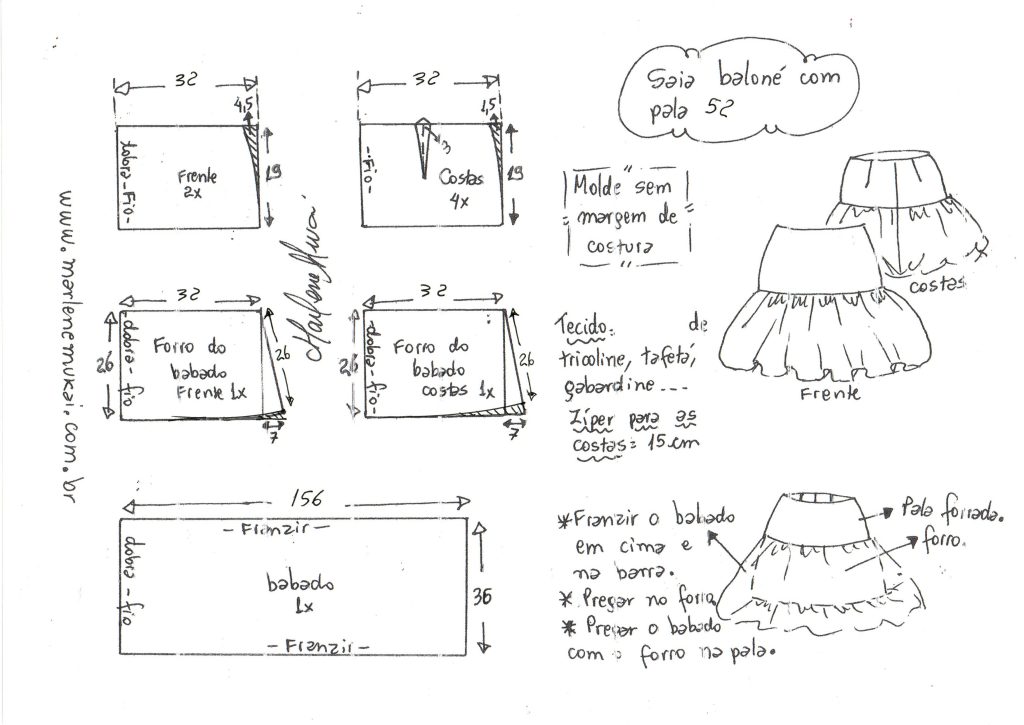 Saia baloné com
pala 52
32
4,5
dobra-Fio-
Frente
2x
19
32
1,5
-Fio-
3
Costas
4x
19
Molde sem
margem de
costura
costas
Frente
www.marlenemukai.com.br
32
26
-dobra-fio
Forro do
babado
Frente 1x
26
7
32
26
-dobra-fio-
Forro do
babado
costas 1x
26
7
Tecido: de
tricoline, tafetá,
gabardine...
Zíper para as
costas= 15 cm
156
- Franzir -
dobra-fio
babado
1x
36
- Franzir -
*Franzir o babado
em cima e
na barra.
* Pregar no forro.
* Pregar o babado
com o forro na pala.
Pala forrada.
forro.